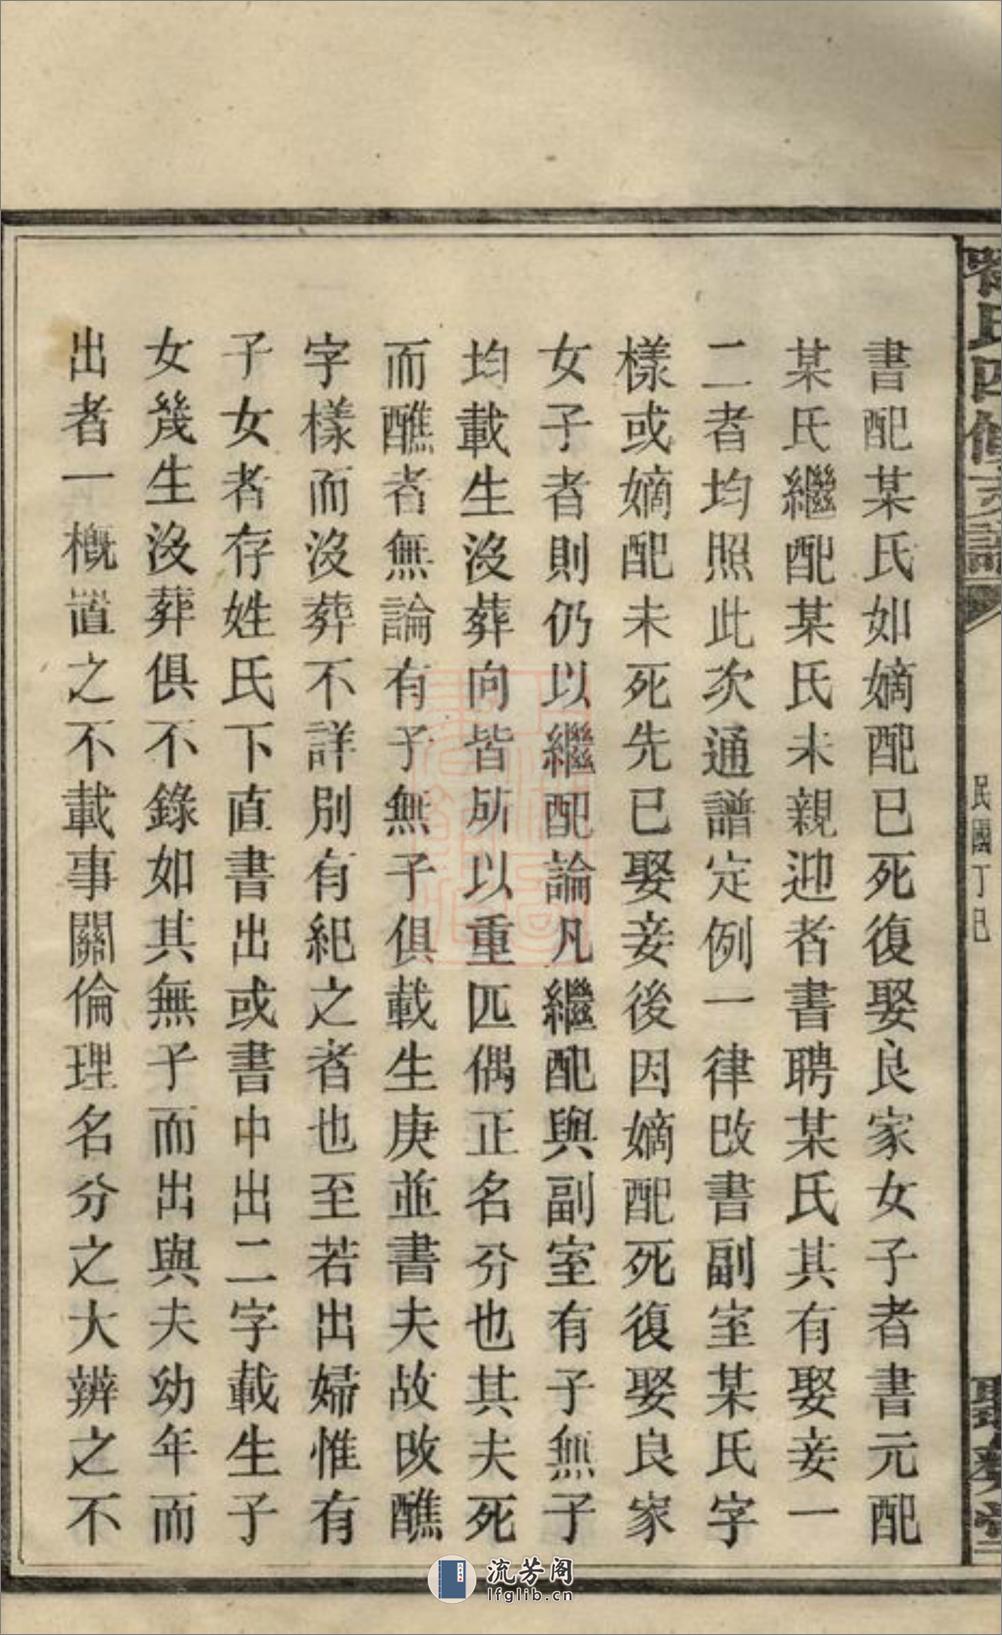 書配某氏如嫡配已死復娶良家女子者書元配
某氏繼配某氏未親迎者書聘某氏其有娶妾一
二者均照此次通譜定例一律改書副室某氏字
樣或嫡配未死先已娶妾後因嫡配死復娶良家
女子者則仍以繼配論凡繼配與副室有子無子
均載生沒葬向皆所以重匹偶正名分也其夫死
而醮者無論有子無子俱載生庚並書夫故改醮
字樣而沒葬不詳別有紀之者也至若出婦惟有
子女者存姓氏下直書出或書中出二字載生子
女幾生沒葬俱不錄如其無子而出與夫幼年而
出者一概置之不載事關倫理名分之大辨之不
氏四修支譜
民國丁巳
堂
流芳阁
lfglib.cn